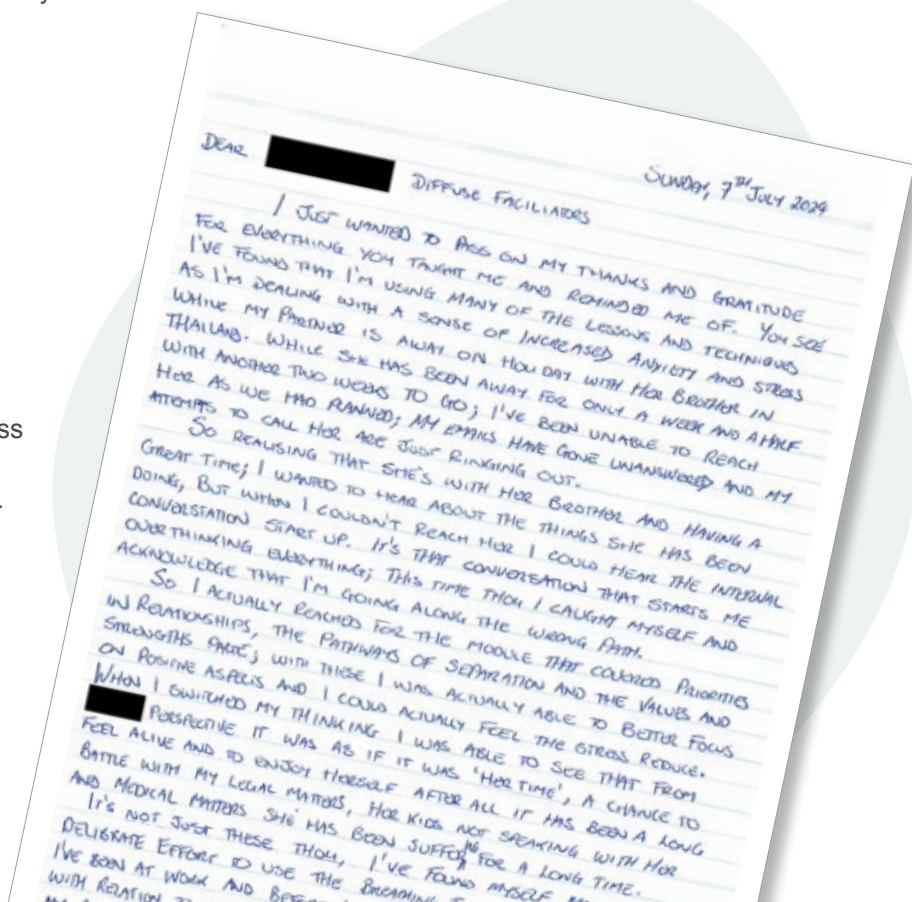 y
ss
.
SUNDAY, 7TH JULY 2024
DEAR DIFFUSE FACILIATORS
I JUST WANTED TO PASS ON MY THANKS AND GRATITUDE
FOR EVERYTHING YOU TAUGHT ME AND REMINDED ME OF. YOU SEE
I'VE FOUND THAT I'M USING MANY OF THE LESSONS AND TECHNIQUES
AS I'M DEALING WITH A SENSE OF INCREASED ANXIETY AND STRESS
WHILE MY PARTNER IS AWAY ON HOLIDAY WITH HER BROTHER IN
THAILAND. WHILE SHE HAS BEEN AWAY FOR ONLY A WEEK AND A HALF
WITH ANOTHER TWO WEEKS TO GO; I'VE BEEN UNABLE TO REACH
HER AS WE HAD PLANNED; MY EMAILS HAVE GONE UNANSWERED AND MY
ATTEMPTS TO CALL HER ARE JUST RINGING OUT.
SO REALISING THAT SHE'S WITH HER BROTHER AND HAVING A
GREAT TIME; I WANTED TO HEAR ABOUT THE THINGS SHE HAS BEEN
DOING, BUT WHEN I COULDN'T REACH HER I COULD HEAR THE INTERNAL
CONVERSTATION START UP. IT'S THAT CONVERSATION THAT STARTS ME
OVERTHINKING EVERYTHING; THIS TIME THOU I CAUGHT MYSELF AND
ACKNOWLEDGE THAT I'M GOING ALONG THE WRONG PATH.
SO I ACTUALLY REACHED FOR THE MODULE THAT COVERED PRIORITIES
IN RELATIONSHIPS, THE PATHWAYS OF SEPARATION AND THE VALUES AND
STRENGTHS PARTS; WITH THESE I WAS ACTUALLY ABLE TO BETTER FOCUS
ON POSITIVE ASPECTS AND I COULD ACTUALLY FEEL THE STRESS REDUCE.
WHEN I SWITCHED MY THINKING I WAS ABLE TO SEE THAT FROM
PERSPECTIVE IT WAS AS IF IT WAS 'HER TIME', A CHANCE TO
FEEL ALIVE AND TO ENJOY HERSELF AFTER ALL IT HAS BEEN A LONG
BATTLE WITH MY LEGAL MATTERS, HER KIDS NOT SPEAKING WITH HER
AND MEDICAL MATTERS SHE HAS BEEN SUFFERING FOR A LONG TIME.
IT'S NOT JUST THESE THOU, I'VE FOUND MYSELF
DELIBRATE EFFORT TO USE THE BREATHING
I'VE BEEN AT WORK AND
WITH RELATION